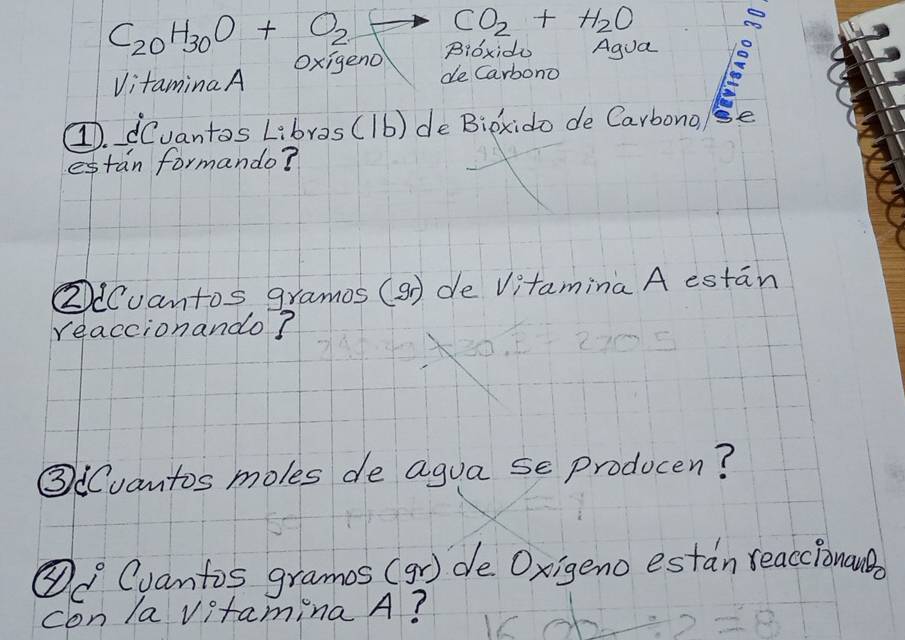 C20H30O + O2 → CO2 + H2O
Vitamina A Oxígeno Bióxido de Carbono Agua
REVISADO 30
①. ¿Cuantas Libras (lb) de Bióxido de Carbono, se
están formando?
②¿Cuantos gramos (gr) de Vitamina A están
reaccionando?
③¿Cuantos moles de agua se producen?
④¿Cuantos gramos (gr) de Oxígeno están reaccionando
con la vitamina A?